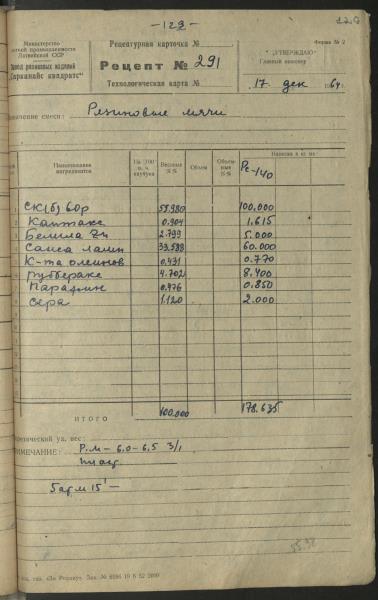 — 129 —
Министерство
легкой промышленности
Латвийской ССР
Завод резиновых изделий
„Сарканайс квадратс“
Рецептурная карточка №
Рецепт № 291
Технологическая карта №
Форма № 2
„УТВЕРЖДАЮ“
Главный инженер
17 дек 1964 г.
Назначение смеси: Резиновые мячи
Наименование ингредиентов
На 100 в. ч. каучука
Весовые %%
Объем
Объемные %%
Навеска в кг на:
Рс-140
СК(б) 60р 55.980 100.000
Каптакс 0.904 1.615
Белила Zn 2.799 5.000
Сажа ламп 33.588 60.000
К-та олеинов 0.431 0.770
Рубберакс 4.702 8.400
Парафин 0.476 0.850
Сера 1.120 2.000
ИТОГО 100.000 178.635
Теоретический уд. вес:
ПРИМЕЧАНИЕ: Р.М — 6,0 — 6,5 3/1
5 атм 15' —